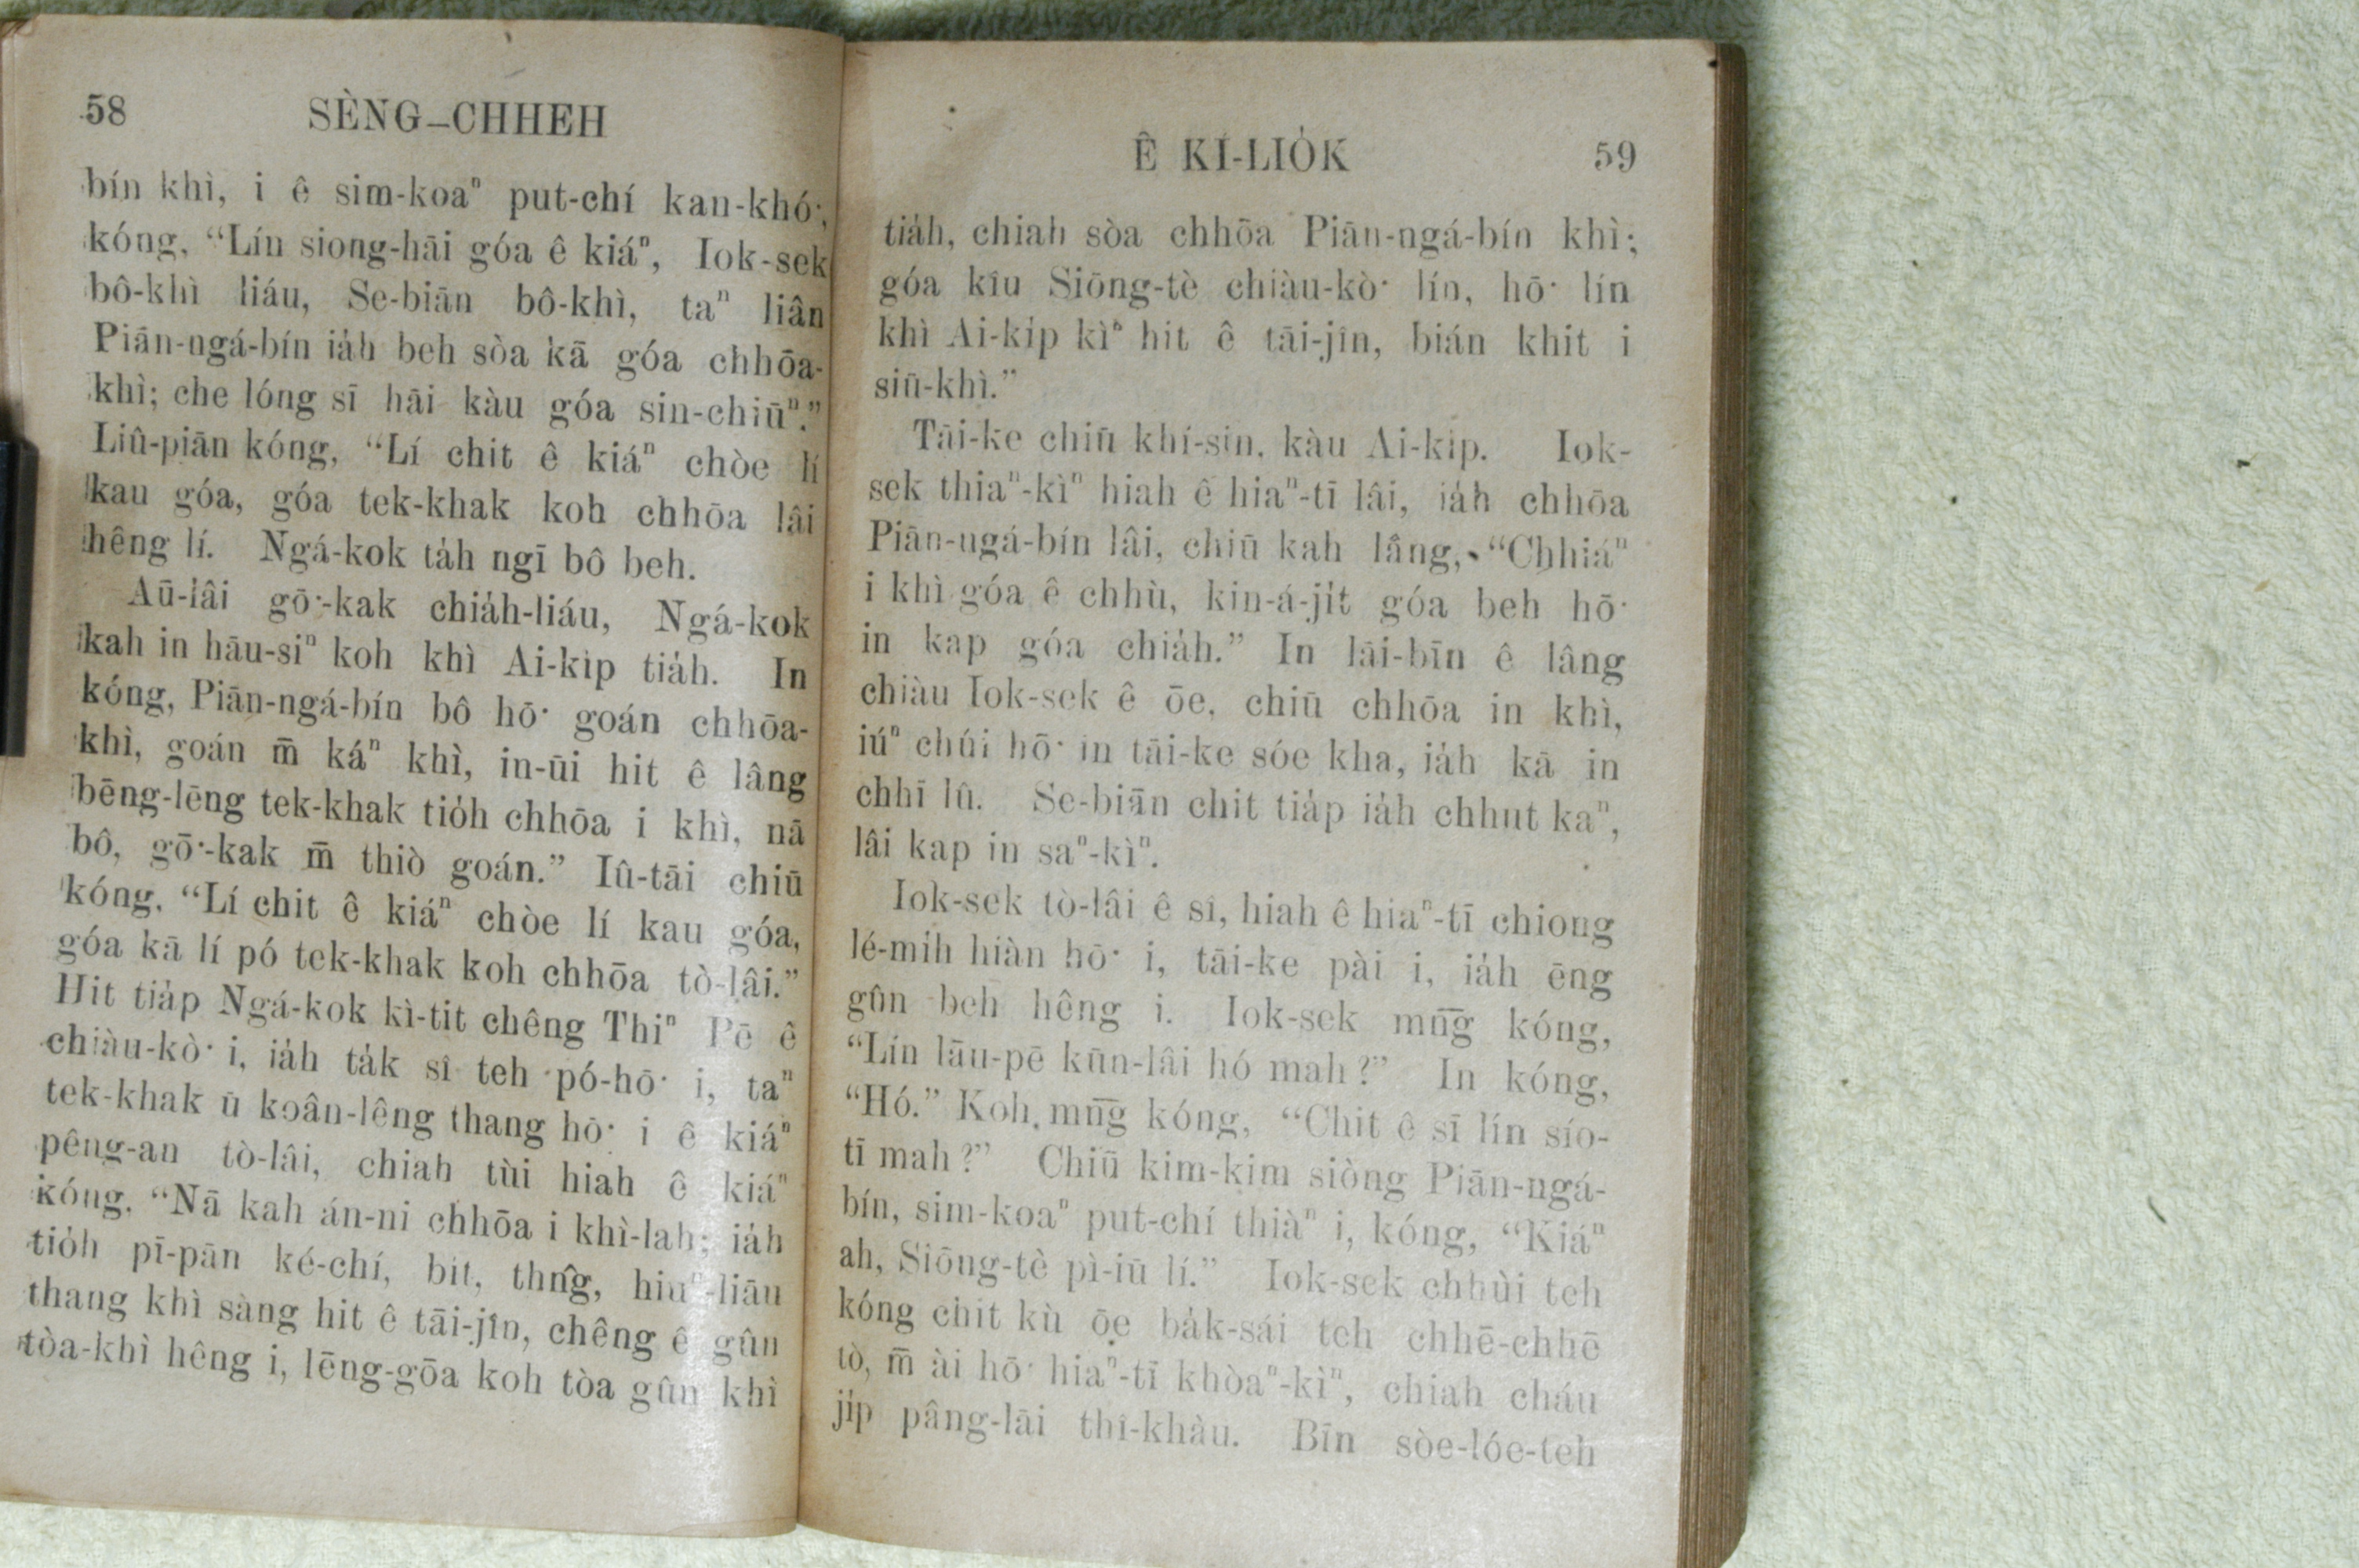 58 SÈNG-CHHEH
bín khì, i ê sim-koaⁿ put-chí kan-khó͘,
kóng, “Lín siong-hāi góa ê kiáⁿ, Iok-sek
bô-khì liáu, Se-biān bô-khì, taⁿ liân
Piān-ngá-bín ia̍h beh sòa kā góa chhōa-
khì; che lóng sī hāi kàu góa sin-chiūⁿ.”
Liû-piān kóng, “Lí chit ê kiáⁿ chòe lí
kau góa, góa tek-khak koh chhōa lâi
hêng lí. Ngá-kok ta̍h ngī bô beh.
Aū-lâi gō͘-kak chia̍h-liáu, Ngá-kok
kah in hāu-siⁿ koh khì Ai-ki̍p tia̍h. In
kóng, Piān-ngá-bín bô hō͘ goán chhōa-
khì, goán m̄ káⁿ khì, in-ūi hit ê lâng
bēng-lēng tek-khak tio̍h chhōa i khì, nā
bô, gō͘-kak m̄ thiò goán.” Iû-tāi chiū
kóng, “Lí chit ê kiáⁿ chòe lí kau góa,
góa kā lí pó tek-khak koh chhōa tò-lâi.”
Hit tia̍p Ngá-kok kì-tit chêng Thiⁿ Pē ê
chiàu-kò͘ i, ia̍h ta̍k sî teh pó-hō͘ i, taⁿ
tek-khak ū koân-lêng thang hō͘ i ê kiáⁿ
pêng-an tò-lâi, chiah tùi hiah ê kiáⁿ
kóng, “Nā kah án-ni chhōa i khì-lah; ia̍h
tio̍h pī-pān ké-chí, bit, thn̂g, hiuⁿ-liāu
thang khì sàng hit ê tāi-jîn, chêng ê gûn
tòa-khì hêng i, lēng-gōa koh tòa gûn khì
Ê KÍ-LIO̍K 59
tia̍h, chiah sòa chhōa Piān-ngá-bín khì;
góa kîu Siōng-tè chiàu-kò͘ lín, hō͘ lín
khì Ai-ki̍p kìⁿ hit ê tāi-jîn, bián khit i
siū-khì.”
Tāi-ke chiū khí-sin, kàu Ai-ki̍p. Iok-
sek thiaⁿ-kìⁿ hiah ê hiaⁿ-tī lâi, ia̍h chhōa
Piān-ngá-bín lâi, chiū kah lâng, “Chhiáⁿ
i khì góa ê chhù, kin-á-ji̍t góa beh hō͘
in kap góa chia̍h.” In lāi-bīn ê lâng
chiàu Iok-sek ê ōe, chiū chhōa in khì,
iúⁿ chúi hō͘ in tāi-ke sóe kha, ia̍h kā in
chhī lû. Se-biān chit tia̍p ia̍h chhut kaⁿ,
lâi kap in saⁿ-kìⁿ.
Iok-sek tò-lâi ê sî, hiah ê hiaⁿ-tī chiong
lé-mi̍h hiàn hō͘ i, tāi-ke pài i, ia̍h ēng
gûn beh hêng i. Iok-sek mn̄g kóng,
“Lín lāu-pē kūn-lâi hó mah?” In kóng,
“Hó.” Koh mn̄g kóng, “Chit ê sī lín sío-
tī mah?” Chiū kim-kim siòng Piān-ngá-
bín, sim-koaⁿ put-chí thiàⁿ i, kóng, “Kiáⁿ
ah, Siōng-tè pì-iū lí.” Iok-sek chhùi teh
kóng chit kù ōe ba̍k-sái teh chhē-chhē
tò, m̄ ài hō͘ hiaⁿ-tī khòaⁿ-kìⁿ, chiah cháu
ji̍p pâng-lāi thî-khàu. Bīn sòe-lóe-teh